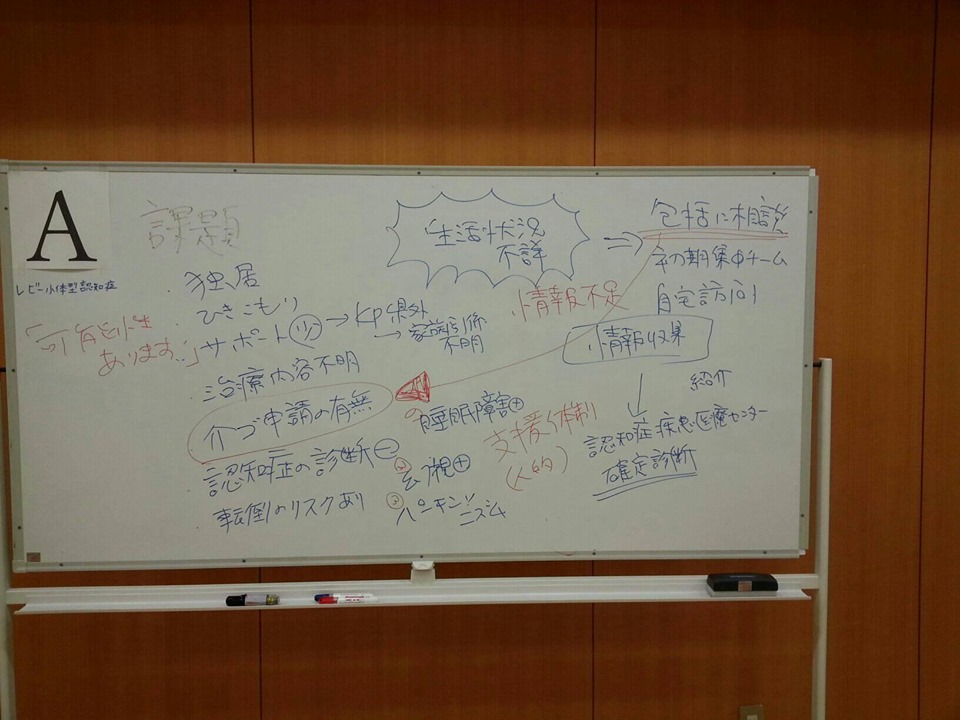 A
レビー小体型認知症
「可能性
あります…」
課題
独居
ひきこもり
サポート少→KP県外
→家族関係
不明
治療内容不明
介ゴ申請の有無
認知症の診断㊀
転倒のリスクあり
睡眠障害⊕
幻視⊕
パーキンソ
ニズム
生活状況
不詳
⇒
情報不足
支援体制
(人的)
包括に相談
初期集中チーム
自宅訪問
情報収集
紹介
認知症疾患医療センター
確定診断